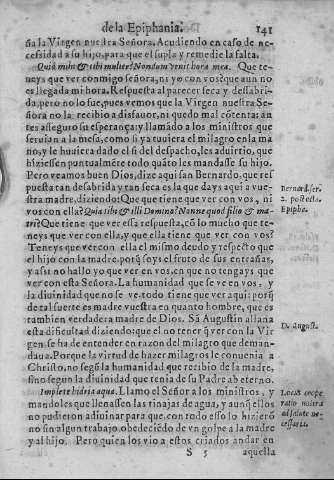 de la Epiphania. 141
ña la Virgen nuestra Señora. Acudiendo en caso de ne-
cessidad a su hijo, para que el supla y remedie la falta.
Quid mihi & tibi mulier? Nondum venit hora mea. Que te-
neys que ver conmigo señora, ni yo con vos? que aun no
es llegada mi hora. Respuesta al parecer seca y dessabri-
da, pero no lo fue, pues vemos que la Virgen nuestra Se-
ñora no la recibio a disfauor, ni quedo mal cōtenta: an-
tes asseguro su esperança: y llamādo a los ministros que
seruian a la mesa, como si ya tuuiera el milagro en la ma
no, y le huuiera dado el si del despacho, les aduirtio, que
hiziessen puntualmēte todo quāto les mandasse su hijo.
Pero veamos buen Dios, dize aqui san Bernardo, que res
puesta tan desabrida y tan seca es la que days aqui a vue-
stra madre, diziendo: Que que tiene que ver con vos, ni
vos con ella? Quid tibi & illi Domina? Nonne quod filio & ma
tri? Que tiene que ver essa respuesta, cō lo mucho que te-
neys que ver con ella, y que ella tiene que ver con vos?
Teneys que ver con ella el mismo deudo y respecto que
el hijo con la madre, porq̃ soys el fruto de sus entrañas,
y assi no hallo yo que ver en vos, en que no tengays que
ver con esta Señora. La humanidad que se ve en vos, y
la diuinidad que no se ve, todo tiene que ver aqui: porq̃
de tal suerte es madre vuestra en quanto hombre, que es
tambien verdadera madre de Dios. Sā Augustin allana
esta dificultad diziendo: que el no tener q̃ ver con la Vir
gen, se ha de entender en razon del milagro que deman-
daua. Porque la virtud de hazer milagros le conuenia a
Christo, no segū la humanidad que recibio de la madre,
sino segun la diuinidad que tenia de su Padre ab eterno.
Implete hidrias aqua. Llamo el Señor a los ministros, y
mandoles que llenassen las tinajas de agua, y aunq̃ ellos
no pudieron adiuinar para que, con todo esso lo hizierō
no sin algun trabajo, obedeciēdo de vn golpe a la madre
y al hijo. Pero quien los vio a estos criados andar en
S 5 aquella
Bernard. ser.
2. post octa.
Epipha.
D. August.